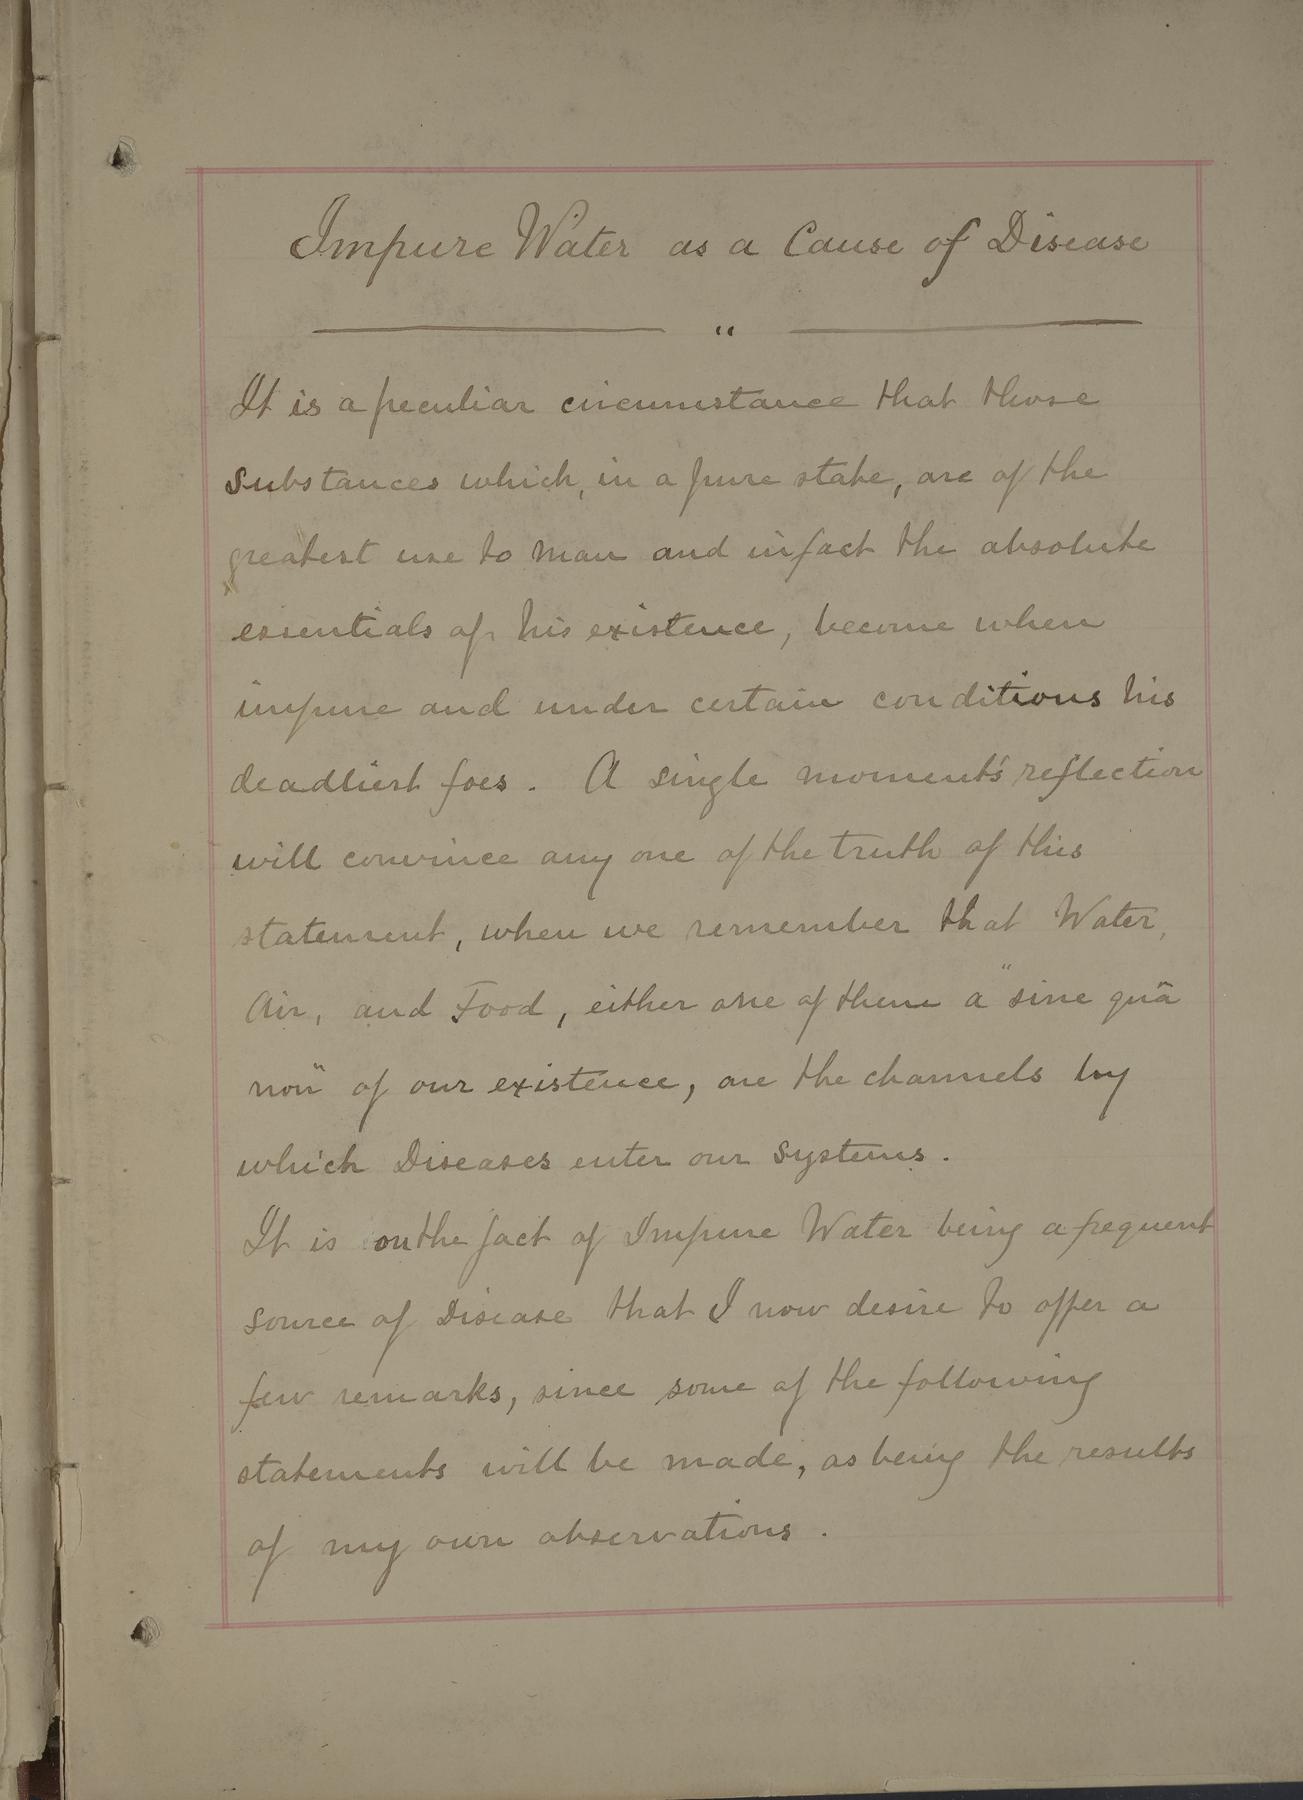 Impure Water as a Cause of Disease
"
It is a peculiar circumstance that those
substances which, in a pure state, are of the
greatest use to man and in fact the absolute
essentials of his existence, become when
impure and under certain conditions his
deadliest foes. A single moment's reflection
will convince any one of the truth of this
statement, when we remember that Water,
Air, and Food, either one of them a "sine quâ
non" of our existence, are the channels by
which Diseases enter our systems.
It is on the fact of Impure Water being a frequent
source of Disease that I now desire to offer a
few remarks, since some of the following
statements will be made, as being the results
of my own observations.